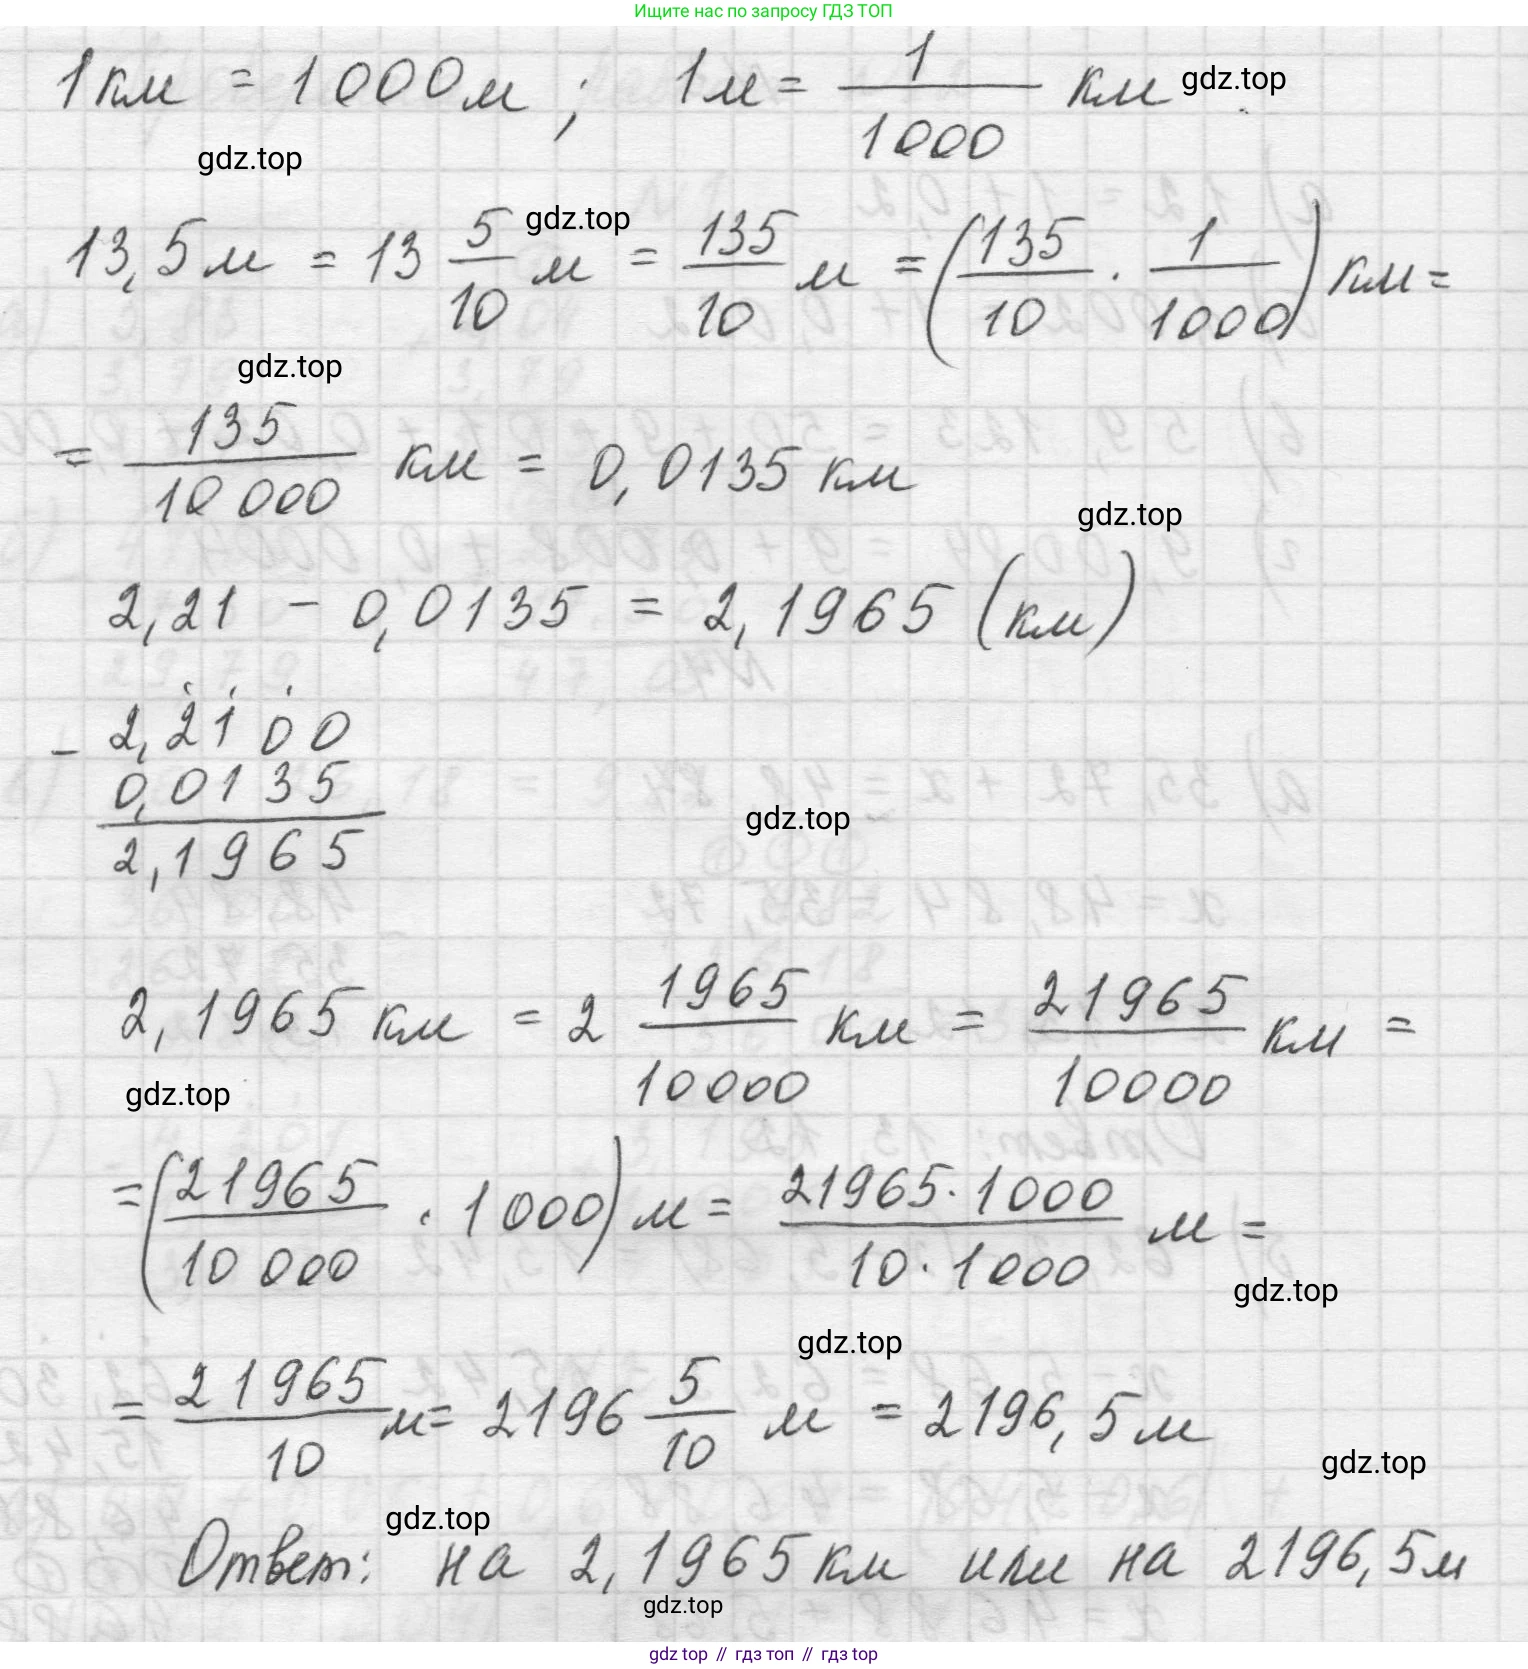 Ищите нас по запросу ГДЗ ТОП
1 км = 1000 м ; 1 м = 1/1000 км gdz.top
gdz.top
13,5 м = 13 5/10 м = 135/10 м = (135/10 · 1/1000) км =
gdz.top
gdz.top
= 135/10 000 км = 0,0135 км
gdz.top
2,21 - 0,0135 = 2,1965 (км)
- 2,2100
0,0135
2,1965
gdz.top
2,1965 км = 2 1965/10000 км = 21965/10000 км =
gdz.top
= (21965/10 000 · 1000) м = 21965·1000/10·1000 м =
gdz.top
gdz.top
= 21965/10 м = 2196 5/10 м = 2196,5 м
gdz.top
gdz.top
Ответ: на 2,1965 км или на 2196,5 м
gdz.top
gdz top // гдз топ // гдз top